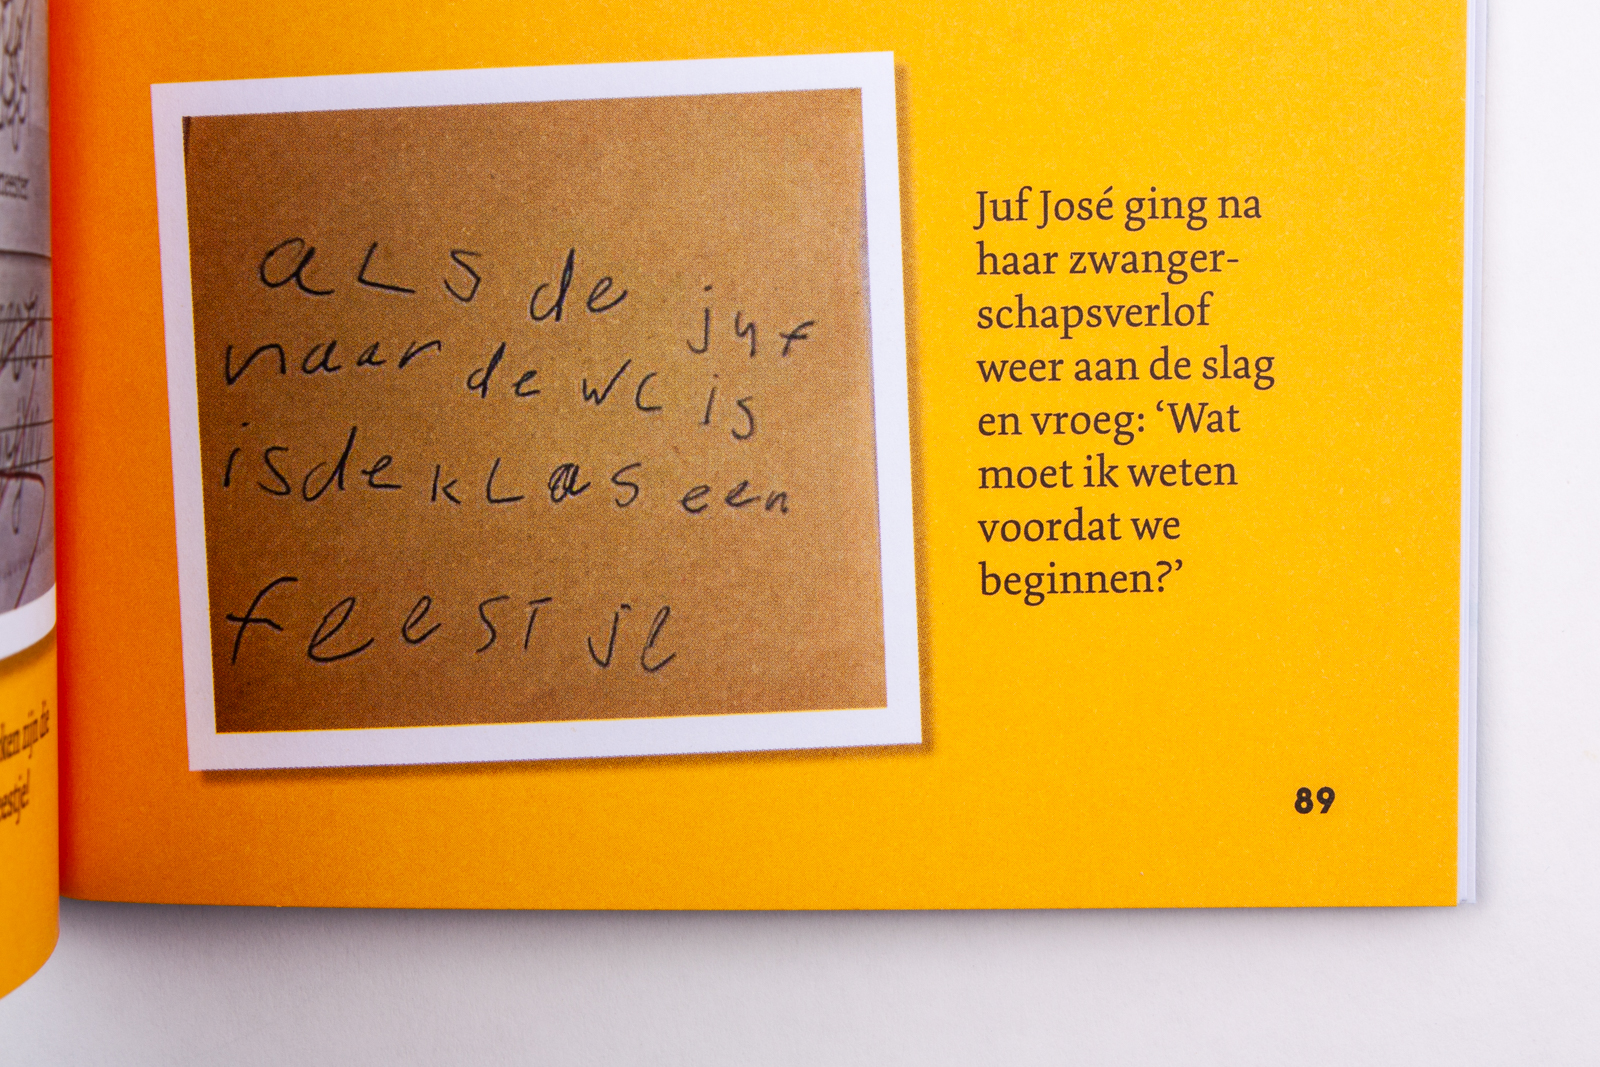 aLs de juf
naar de wc is
is de kLas een
feestje
Juf José ging na
haar zwanger-
schapsverlof
weer aan de slag
en vroeg: ‘Wat
moet ik weten
voordat we
beginnen?’
89
zijn die